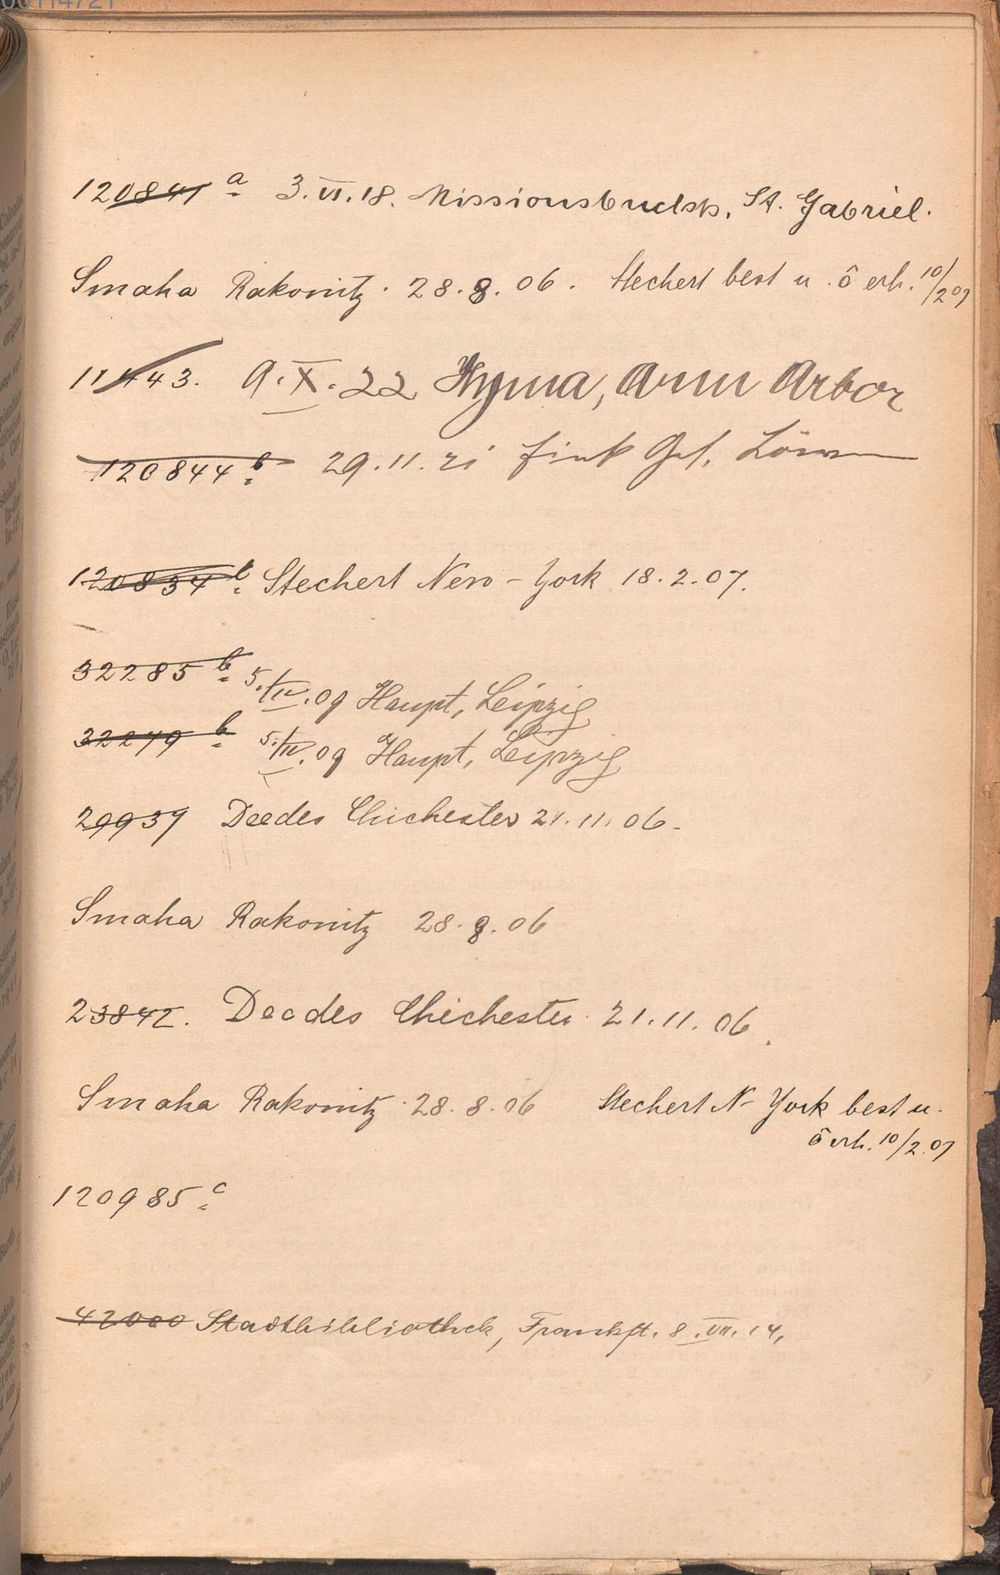 120841 a 3.VI.18. Missionsbuchh. St. Gabriel.
Smaha Rakonitz. 28.8.06. Stechert best u. ô erh. 10/2 07
11443. 9.X.22 Hyma, Ann Arbor
120844 b 29.11. Fink
120834 b Stechert New-York 18.2.07.
32285 b 5./IV.09 Haupt, Leipzig
32279 b 5./IV.09 Haupt, Leipzig
29939 Deedes Chichester 21.11.06.
Smaha Rakonitz 28.8.06
23842. Deedes Chichester 21.11.06.
Smaha Rakonitz 28.8.06 Stechert N-York best u.
ô erh. 10/2.07
120985 c
42000 Stadtbibliothek, Frankft. 8.VII.14.